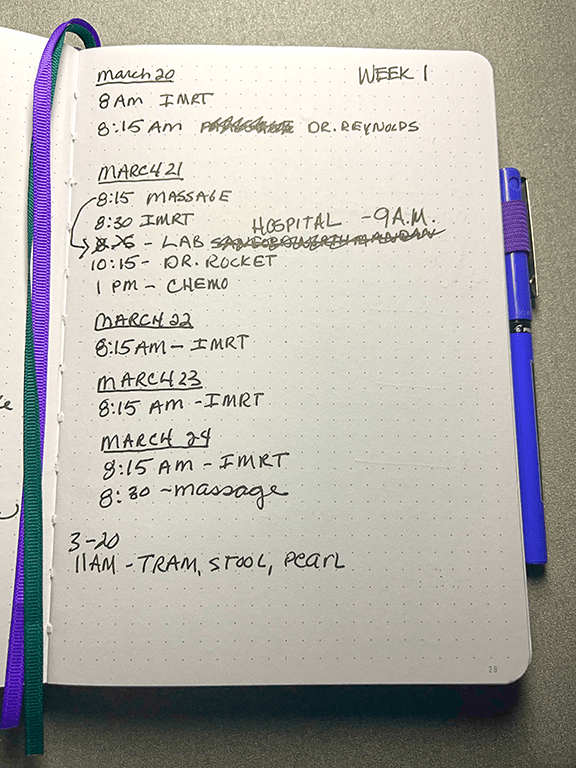 WEEK 1
March 20
8 AM IMRT
8:15 AM DR. REYNOLDS
MARCH 21
8:15 MASSAGE
8:30 IMRT
HOSPITAL - 9 A.M.
- LAB
10:15 - DR. ROCKET
1 PM - CHEMO
MARCH 22
8:15 AM - IMRT
MARCH 23
8:15 AM - IMRT
MARCH 24
8:15 AM - IMRT
8:30 - massage
3-20
11 AM - TRAM, STOOL, Pearl
28